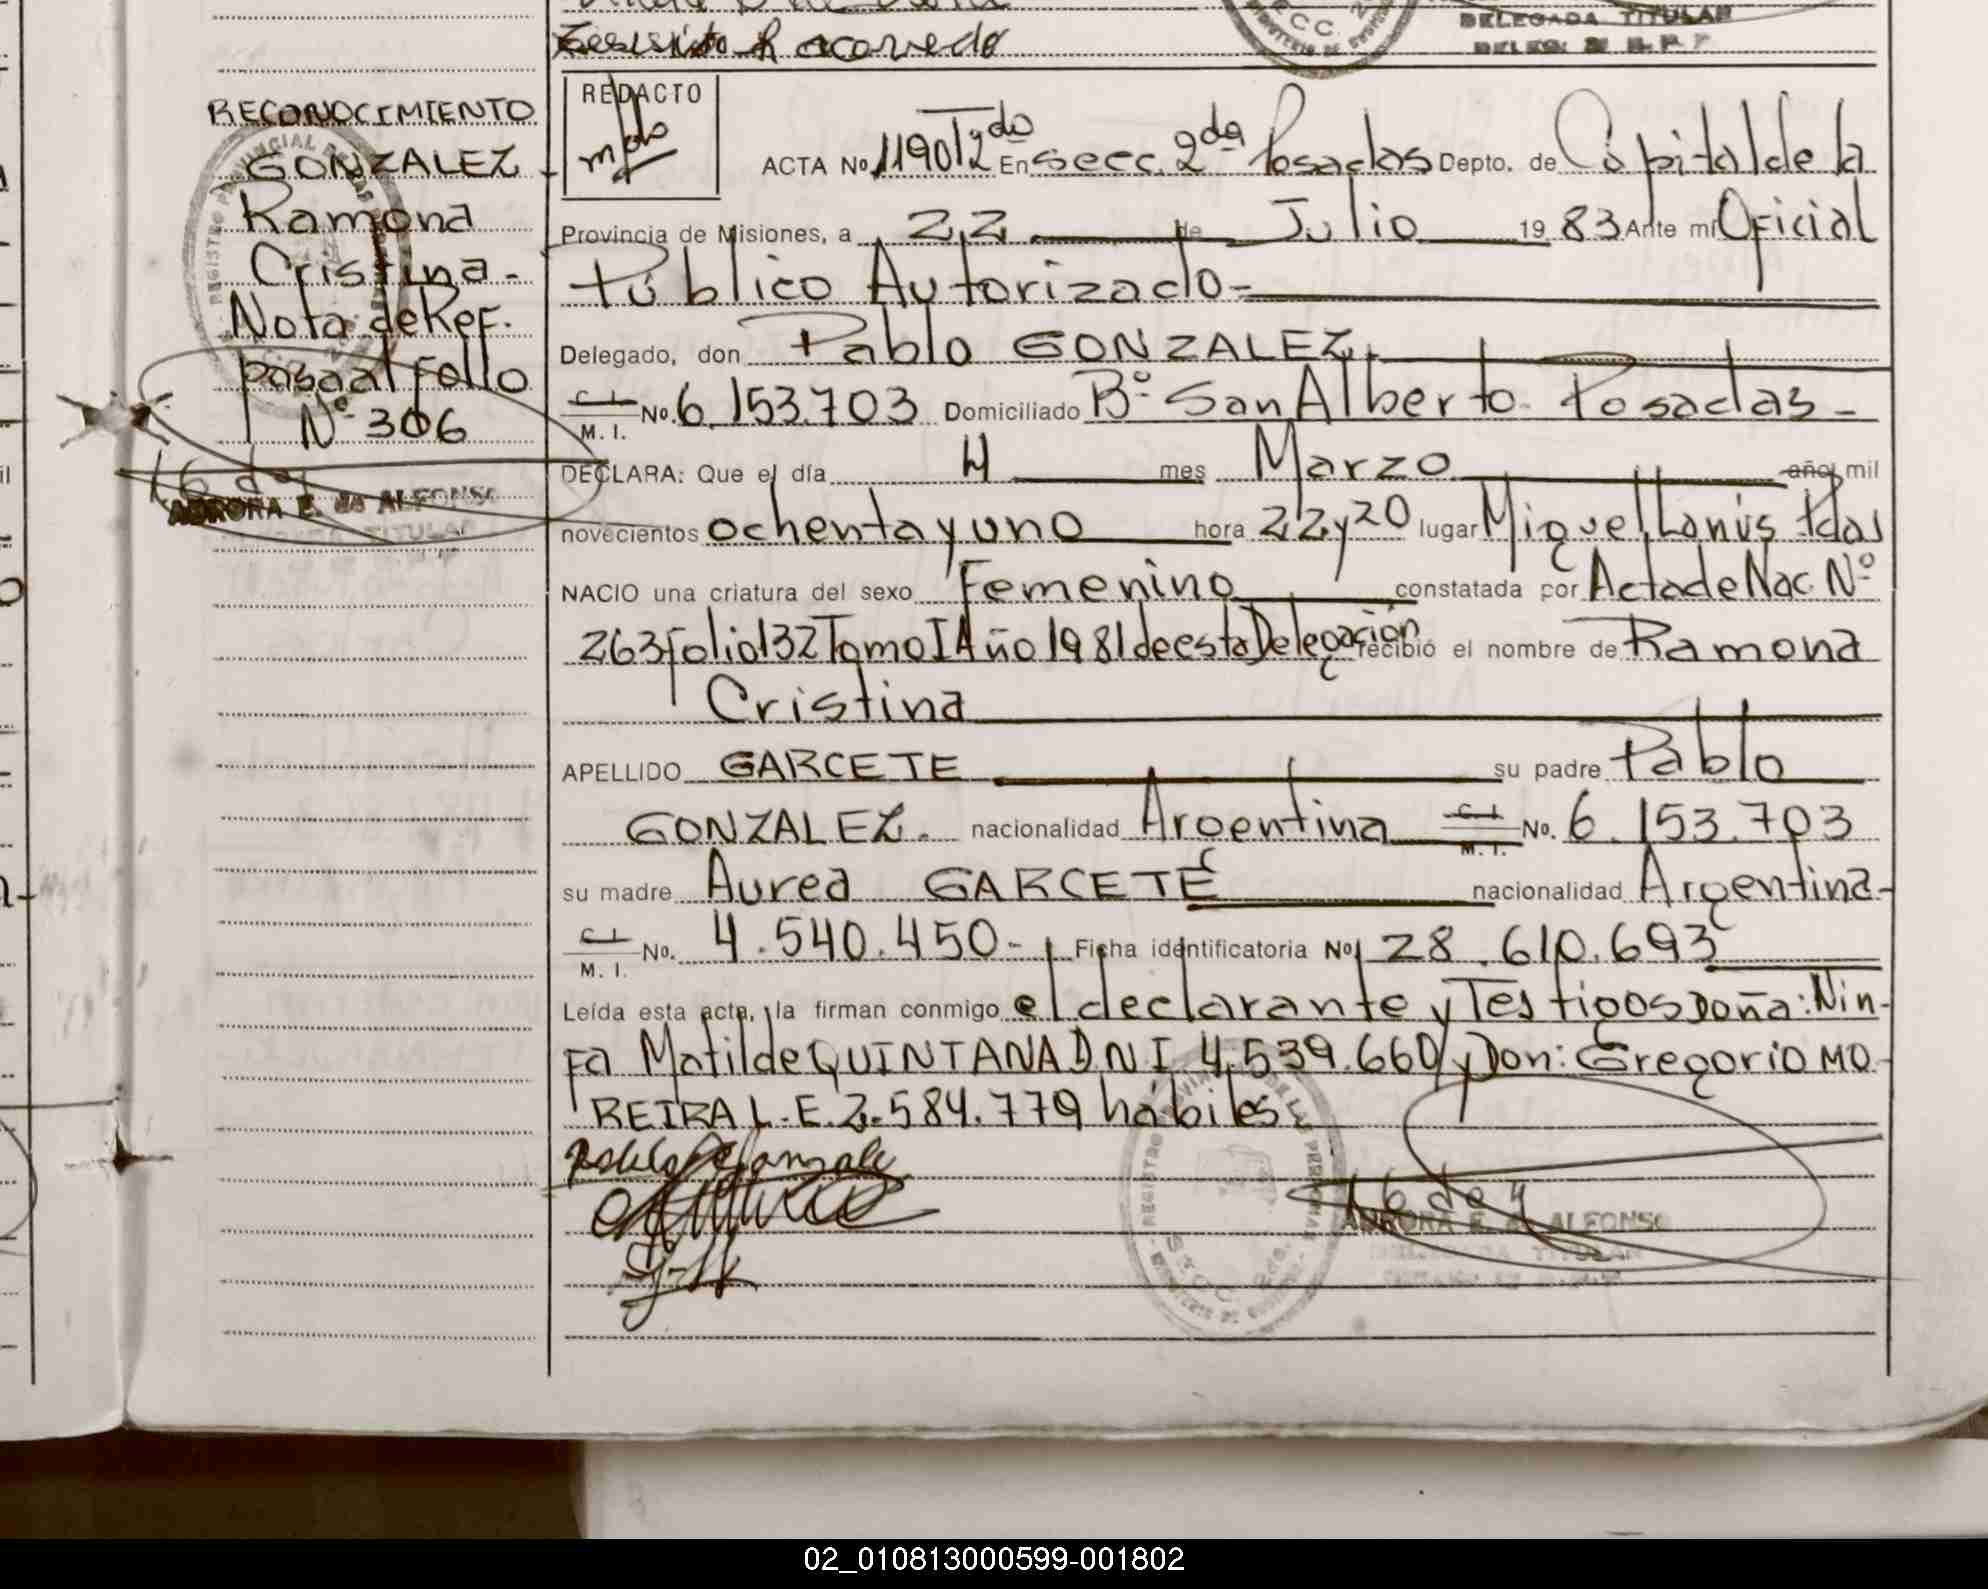 DELEGADA TITULAR
RECONOCIMIENTO
GONZALEZ
Ramona
Cristina-
Nota de Ref.
pasa al Folio
Nº 306
AURORA E. de ALFONSO
TITULAR
REDACTO
ACTA No 1190 T 2do En secc. 2da Posadas Depto. de Capital de la
Provincia de Misiones, a 22 de Julio 1983 Ante mí Oficial
Público Autorizado-
Delegado, don Pablo GONZALEZ
C. I. M. I. No. 6.153.703 Domiciliado Bº San Alberto Posadas-
DECLARA: Que el día 4 mes Marzo año mil
novecientos ochenta y uno hora 22 y 20 lugar Miguel Lanús Pdas
NACIO una criatura del sexo Femenino constatada por Acta de Nac. Nº
263 folio 132 Tomo I Año 1981 de esta Delegación recibió el nombre de Ramona
Cristina
APELLIDO GARCETE su padre Pablo
GONZALEZ. nacionalidad Argentina C. I. M. I. No. 6.153.703
su madre Aurea GARCETE nacionalidad Argentina-
C. I. M. I. No. 4.540.450- Ficha identificatoria No 28.610.693
Leída esta acta, la firman conmigo el declarante y Testigos Doña: Nin-
fa Matilde QUINTANA D N I 4.539.660 y Don: Gregorio MO-
REIRA L.E. 2.584.779 hábiles
AURORA E. de ALFONSO
DELEGADA TITULAR
02_010813000599-001802